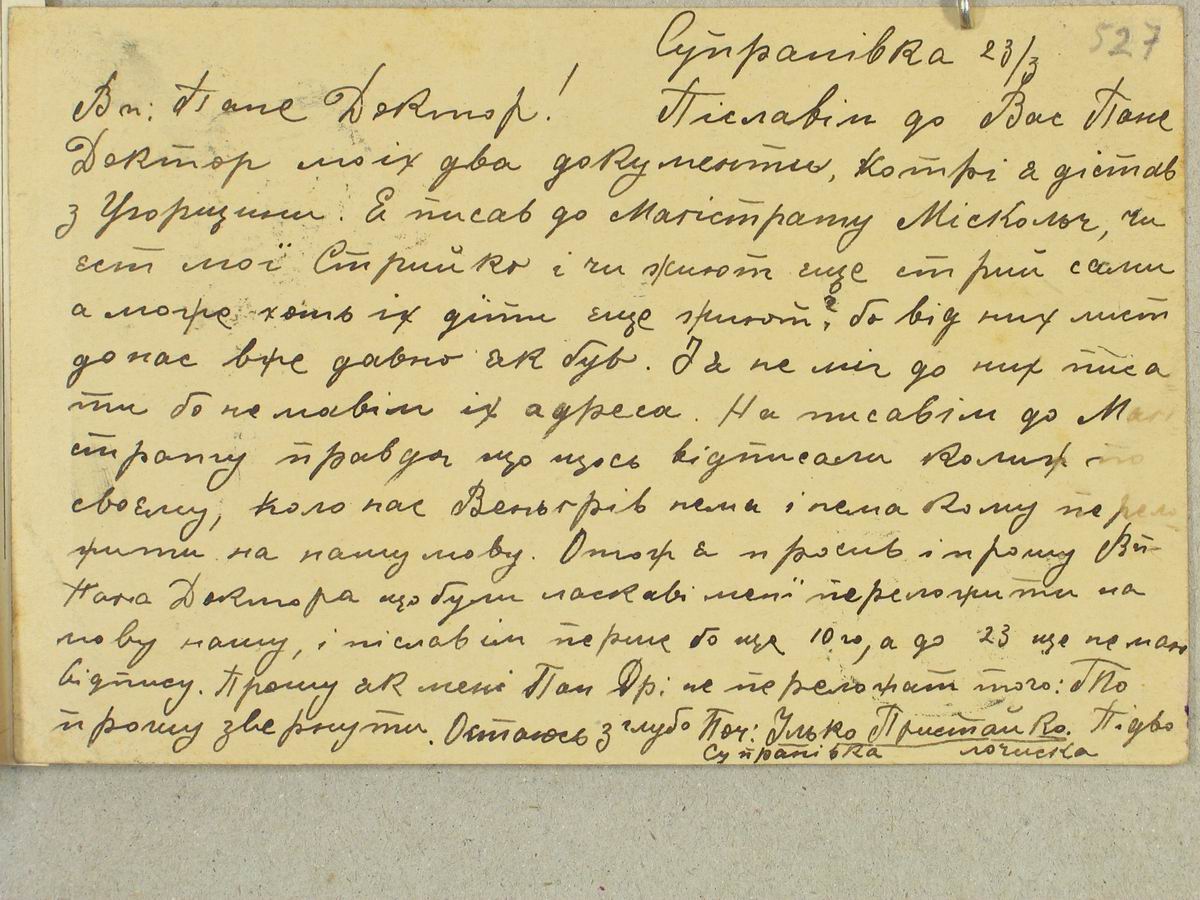 527
Супранівка 23/3
Вп: Пане Доктор! Піславім до Вас Пане
Доктор моіх два документи, котрі я дістав
з Угорщини. Я писав до Магістрату Місколч, чи
ест мої Стрийко і чи жиют еще стрий сами
а може хоть іх діти еще жиют? бо від них лист
до нас вже давно як був. І я не міг до них писа
ти бо не мавім іх адреса. Написавім до Маг
страту правда що щось відписали колиж по
своєму, коло нас Веньгрів нема і нема кому перело
жити на нашу мову. Отож я просив і прошу Вп
Пана Доктора що були ласкаві мені переложити на
мову нашу, і піславім перше бо ще 10го, а до 23 ще не маю
відпису. Прошу як мені Пан Др: не переложат того: то
прошу звернути. Остаюсь з глубо Поч: Ілько Пристайко. Підво
Супранівка лочиска